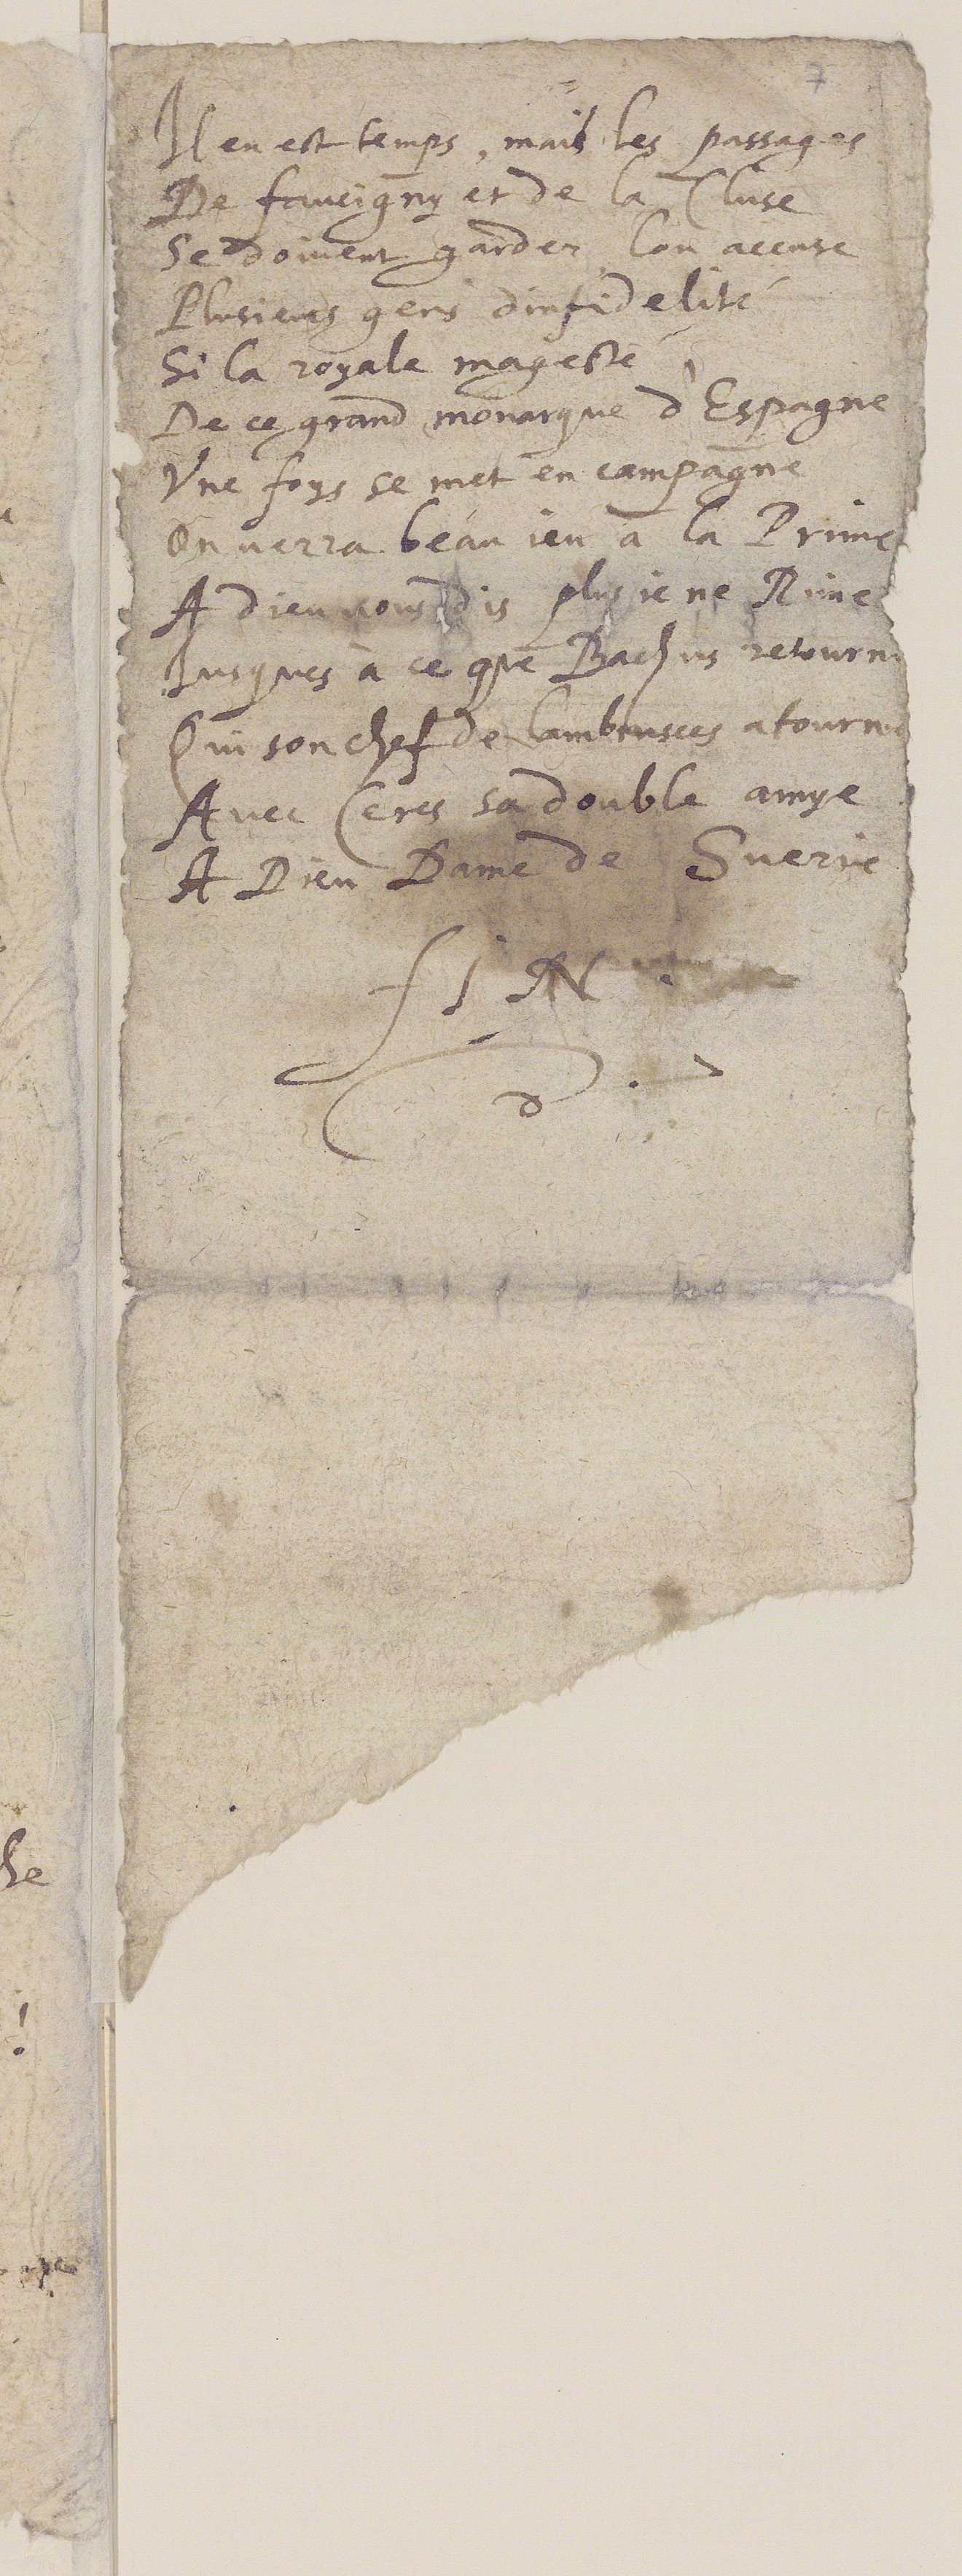 7
Il en est temps, mais les passages
De faucigny et de la Cluse
Se doivent garder, lon accuse
Plusieurs gens dinfidelité
Si la royale magesté
De ce grand monarque d'Espagne
Vne foys se met en campagne
On uerra beau ieu a la Prime
A dieu uous dis plus ie ne Rime
Iusques à ce que Bachus retourne
Qui son chef de lambrusces atourne
Auec Ceres sa double amye
A Dieu Dame de Suerie
FIN.
he
!